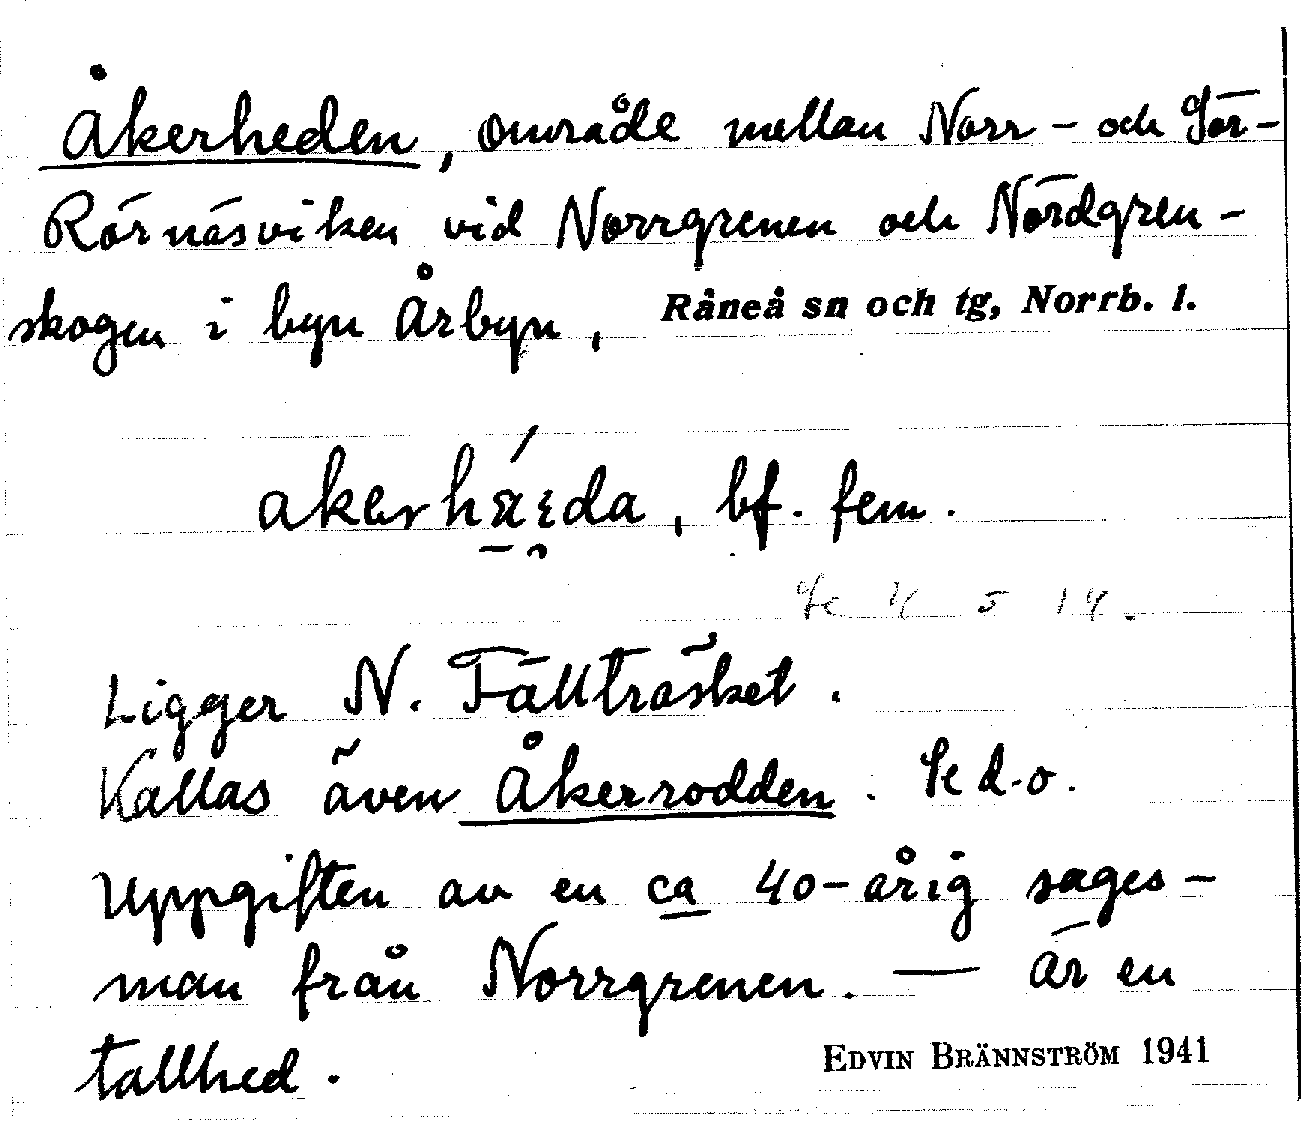 Åkerheden, område mellan Norr- och Sör-
Rörnäsviken vid Norrgrenen och Nördgren-
skogen i byn Årbyn, Råneå sn och tg, Norrb. l.
bf. fem.
Ligger N. Fällträsket.
Kallas även Åkerrodden. Se d.o.
Uppgiften av en ca 40-årig sages-
man från Norrgrenen. — Är en
tallhed.
EDVIN BRÄNNSTRÖM 1941